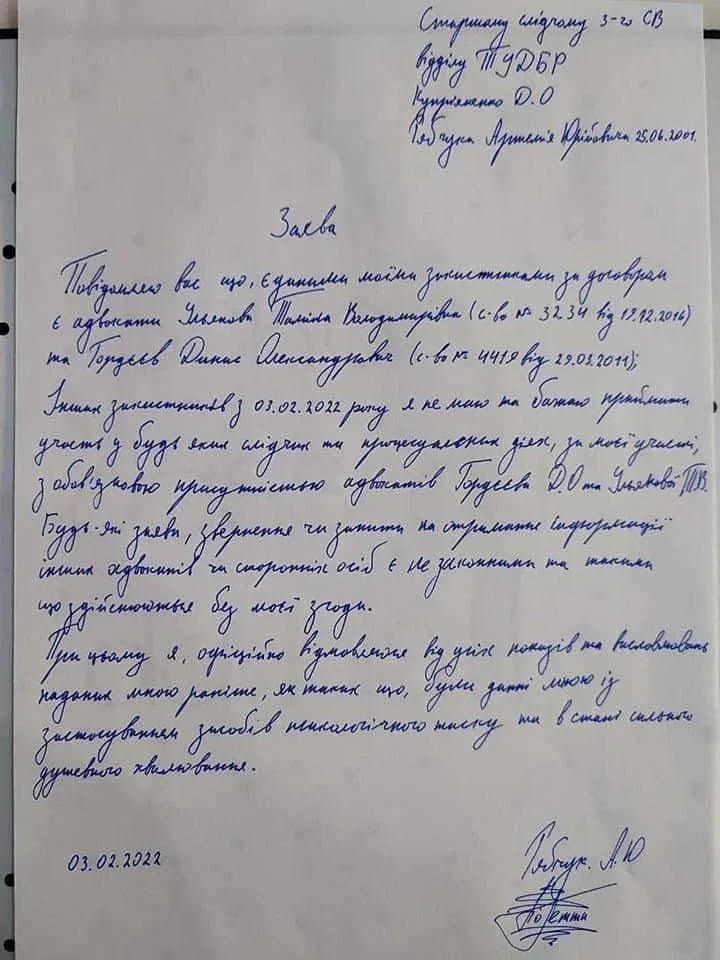 Старшому слідчому 3-го СВ
відділу ТУДБР
Купрієненко Д.О
Рябчука Артемія Юрійовича 25.06.2001.
Заява
Повідомляю вас що, єдиними моїми захистниками за договорам
є адвокати Ульякова Таліна Володимирівна (с-во № 3234 від 19.12.2016)
та Гордєєв Динис Олександрович (с-во № 4419 від 29.03.2011);
Інших захистників з 03.02.2022 року я не маю та бажаю приймати
участь у будь яких слідчих та процесуальних діях, за моєї участі,
з обов'язковою присутністью адвокатів Гордєєва Д.О та Ульякової Т.В.
Будь-які заяви, звернення чи запити на отримання інформації
інших адвокатів чи сторонніх осіб є не законними та такими
що здійснюються без моєї згоди.
При цьому я, офіційно відмовляюся від усіх показів та висловлювань
наданих мною раніше, як таких що, були данні мною із
застосуванням засобів психологічного тиску та в стані сильного
душевного хвилювання.
03.02.2022
Рябчук. А.Ю